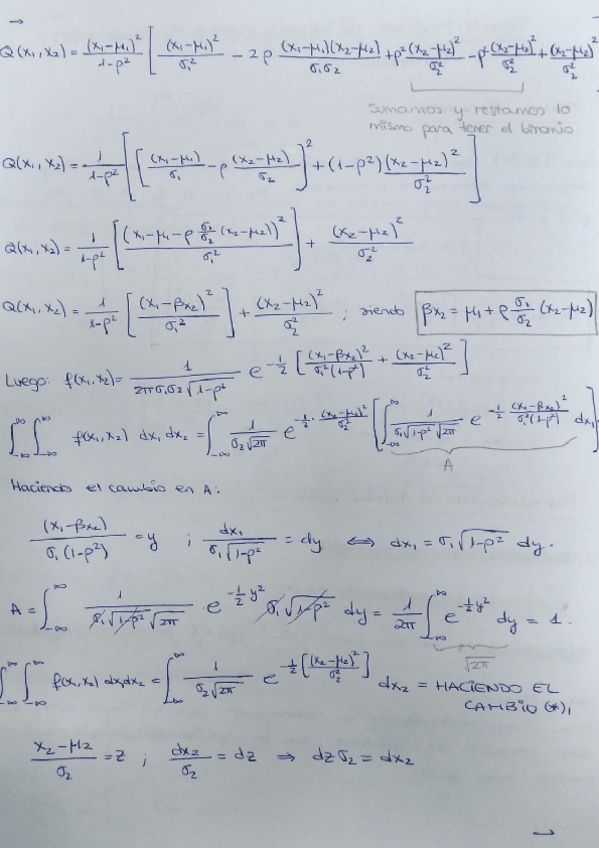 →
Q(x₁,x₂) = (x₁-μ₁)²/(1-ρ²) [ (x₁-μ₁)²/σ₁² - 2ρ (x₁-μ₁)(x₂-μ₂)/(σ₁σ₂) + ρ² (x₂-μ₂)²/σ₂² - ρ² (x₂-μ₂)²/σ₂² + (x₂-μ₂)²/σ₂²
Sumamos y restamos lo
mismo para tener el binomio
Q(x₁,x₂) = 1/(1-ρ²) [ [ (x₁-μ₁)/σ₁ - ρ (x₂-μ₂)/σ₂ ]² + (1-ρ²) (x₂-μ₂)²/σ₂² ]
Q(x₁,x₂) = 1/(1-ρ²) [ (x₁-μ₁-ρ σ₁/σ₂ (x₂-μ₂))²/σ₁² ] + (x₂-μ₂)²/σ₂²
Q(x₁,x₂) = 1/(1-ρ²) [ (x₁-βx₂)²/σ₁² ] + (x₂-μ₂)²/σ₂² ; siendo βx₂ = μ₁ + ρ σ₁/σ₂ (x₂-μ₂)
Luego: f(x₁,x₂) = 1/(2πσ₁σ₂√(1-ρ²)) e^(-1/2 [ (x₁-βx₂)²/(σ₁²(1-ρ²)) + (x₂-μ₂)²/σ₂² ])
∫_{-∞}^{∞} ∫_{-∞}^{∞} f(x₁,x₂) dx₁ dx₂ = ∫_{-∞}^{∞} 1/(σ₂√2π) e^(-1/2 · (x₂-μ₂)²/σ₂²) [ ∫_{-∞}^{∞} 1/(σ₁√(1-ρ²)√2π) e^(-1/2 (x₁-βx₂)²/(σ₁²(1-ρ²))) dx₁ ]
A
Haciendo el cambio en A:
(x₁-βx₂)/(σ₁(1-ρ²)) = y ; dx₁/(σ₁√(1-ρ²)) = dy ⇔ dx₁ = σ₁√(1-ρ²) dy.
A = ∫_{-∞}^{∞} 1/(σ₁√(1-ρ²)√2π) · e^(-1/2 y²) σ₁√(1-ρ²) dy = 1/2π ∫_{-∞}^{∞} e^(-1/2 y²) dy = 1.
√2π
∫_{-∞}^{∞} ∫_{-∞}^{∞} f(x₁,x₂) dx₁dx₂ = ∫_{-∞}^{∞} 1/(σ₂√2π) e^(-1/2 [(x₂-μ₂)²/σ₂²]) dx₂ = HACIENDO EL
CAMBIO (*),
(x₂-μ₂)/σ₂ = z ; dx₂/σ₂ = dz ⇒ dz σ₂ = dx₂
→